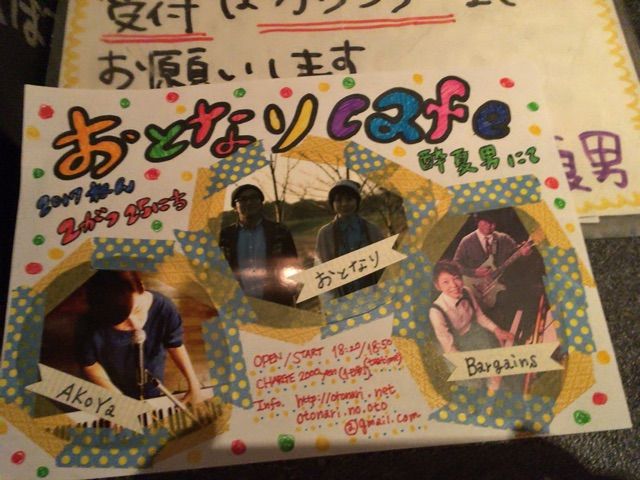 受付はカウンターまで
お願いします
おとなり cafe
酔夏男にて
2017ねん
2がつ25にち
おとなり
AKoYa
Bargains
OPEN/START 18:20/18:50
CHARGE 2000yen
Info. http://otonari.net
otonari.no.oto
@gmail.com
夏男